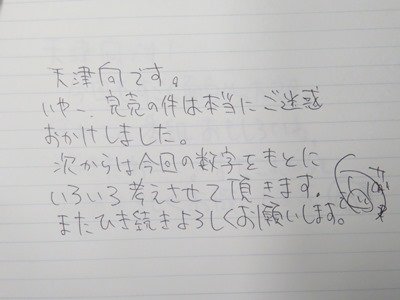 天津向です。
いやー、完売の件は本当にご迷惑
おかけしました。
次からは今回の数字をもとに
いろいろ考えさせて頂きます。
またひき続きよろしくお願いします。